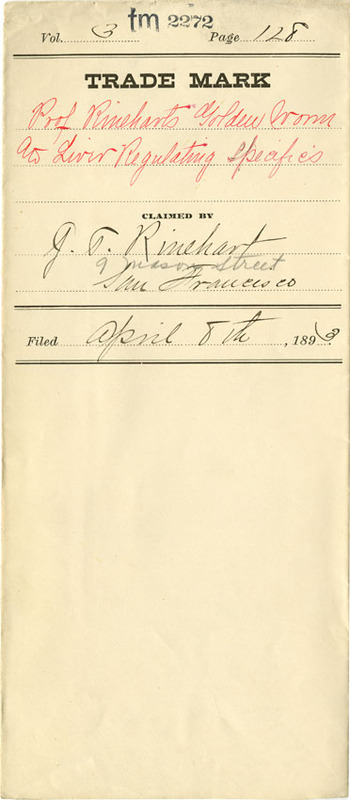 tm 2272
Vol. 3 Page 128
TRADE MARK
Prof Rineharts Golden Worm
Liver Regulating Specifics
CLAIMED BY
J. T. Rinehart
9 Mason Street
San Francisco
Filed April 8th, 1893